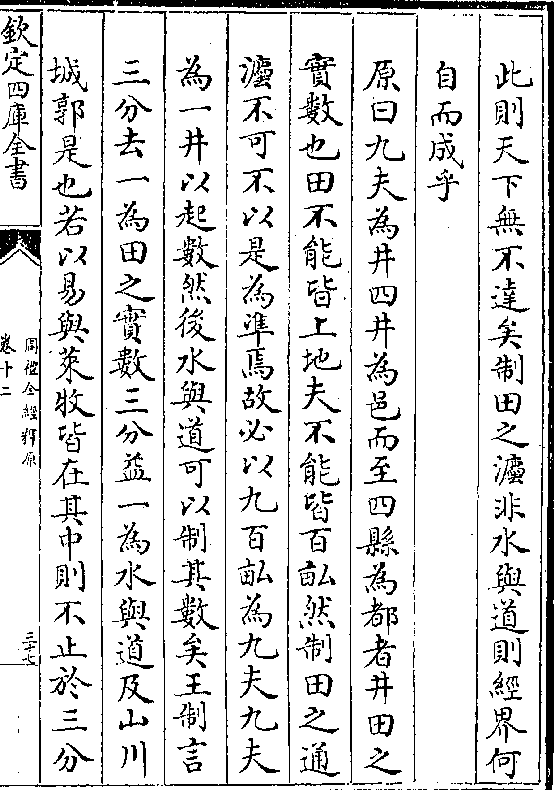 此則天下無不達矣制田之灋非水與道則經界何
自而成乎
原曰九夫為井四井為邑而至四縣為都者井田之
實數也田不能皆上地夫不能皆百畆然制田之通
灋不可不以是為準焉故必以九百畆為九夫九夫
為一井以起數然後水與道可以制其數矣王制言
三分去一為田之實數三分益一為水與道及山川
城郭是也若以易與萊牧皆在其中則不止於三分
欽定四庫全書
周禮全經釋原
卷十二
三十七